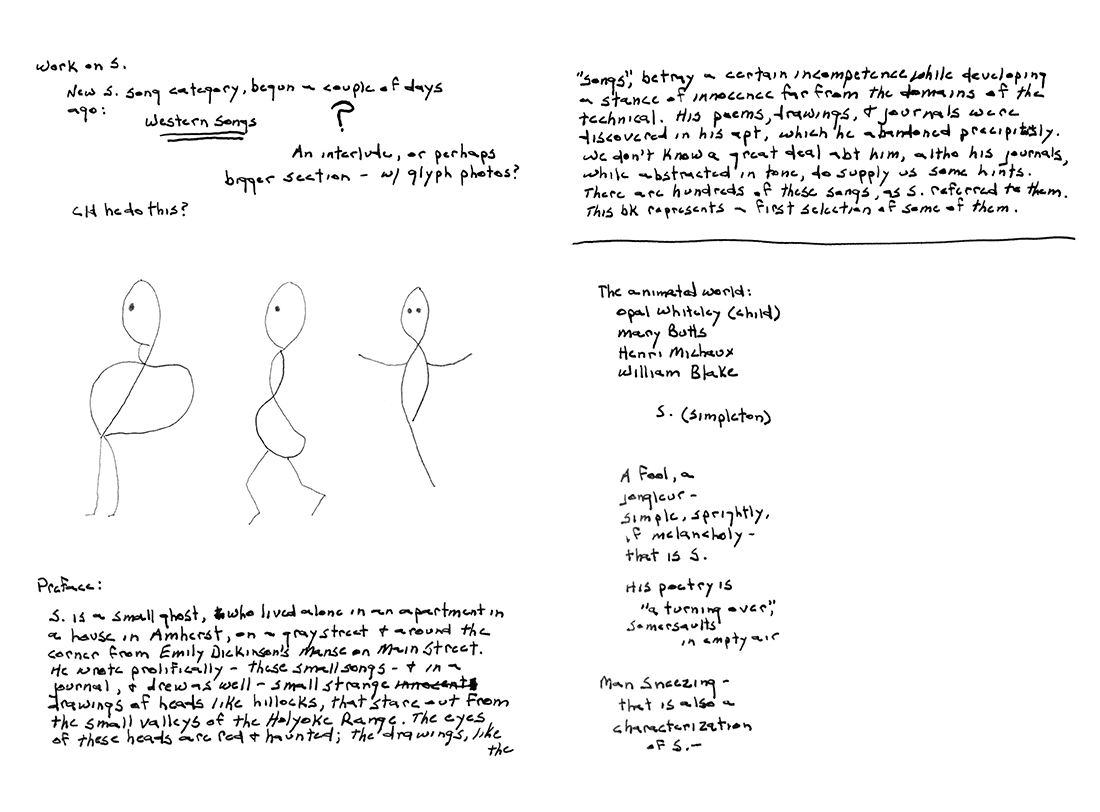 Work on S.
New S. song category, begun a couple of days
ago:
Western Songs
?
An interlude, or perhaps
bigger section - w/ glyph photos?
cld he do this?
Preface:
S. is a small ghost, who lived alone in an apartment in
a house in Amherst, on a gray street & around the
corner from Emily Dickinson's Manse on Main Street.
He wrote prolifically - these small songs - & in a
journal, & drew as well - small strange innocents
drawings of heads like hillocks, that stare out from
the small valleys of the Holyoke Range. The eyes
of these heads are red & haunted; the drawings, like
the
"songs", betray a certain incompetence while developing
a stance of innocence far from the domains of the
technical. His poems, drawings, & journals were
discovered in his apt, which he abandoned precipitously.
We don't know a great deal abt him, altho his journals,
while abstracted in tone, do supply us some hints.
There are hundreds of these songs, as S. referred to them.
This bk represents a first selection of some of them.
The animated world:
Opal Whiteley (child)
Mary Butts
Henri Michaux
William Blake
S. (simpleton)
A Fool, a
jongleur -
simple, sprightly,
if melancholy -
that is S.
His poetry is
"a turning over",
somersaults
in empty air
Man Sneezing -
that is also a
characterization
of S. -